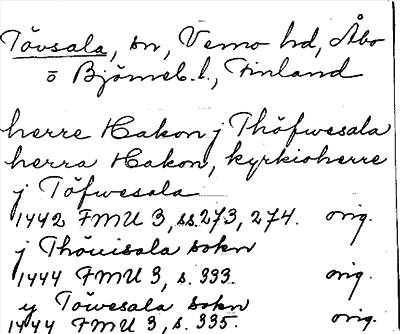 Tövsala, sn, Vemo hd, Åbo
o Björneb. l., Finland
herre Hakon j Thöfwesala
herra Hakon, kyrkioherre
j Töfwesala
1442 FMU 3, ss. 273, 274. orig.
j Thöuisala sokn
1444 FMU 3, s. 333. orig.
y Töwesala sokn
1444 FMU 3, s. 335. orig.